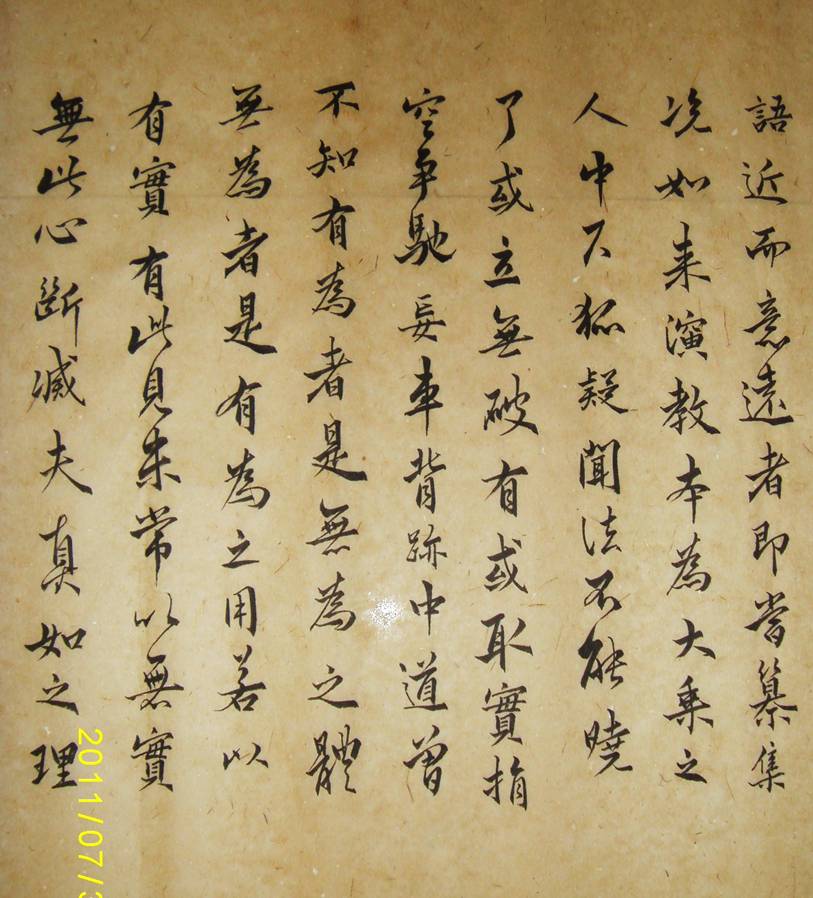 語近而意遠者即當纂集
况如来演教本為大乘之
人中下狐疑聞法不能曉
了或立無破有或取實捐
空爭馳妄車背跡中道曾
不知有為者是無為之體
無為者是有為之用若以
有實有此見未常以無實
無此心斷滅夫真如之理
2011/07/3